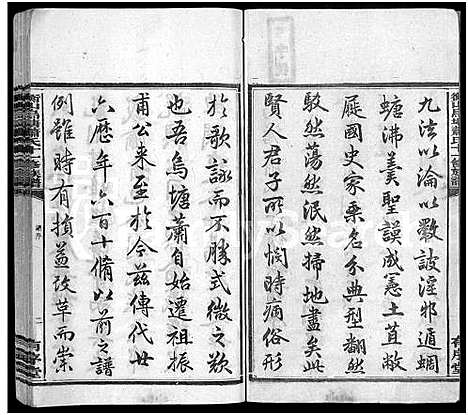 九法以淪以斁詖淫邪遁蜩
螗沸羹聖謨成憲土苴敝
屣國史家乘名分典型翻然
駮然蕩然泯然掃地盡矣此
賢人君子所以憫時痛俗形
於歌詠而不勝式微之歎
也吾烏塘蕭自始遷祖振
甫公來至於今茲傳代廿
六歷年六百十備以前之譜
例雖時有損益改草而崇
有序堂
有序堂